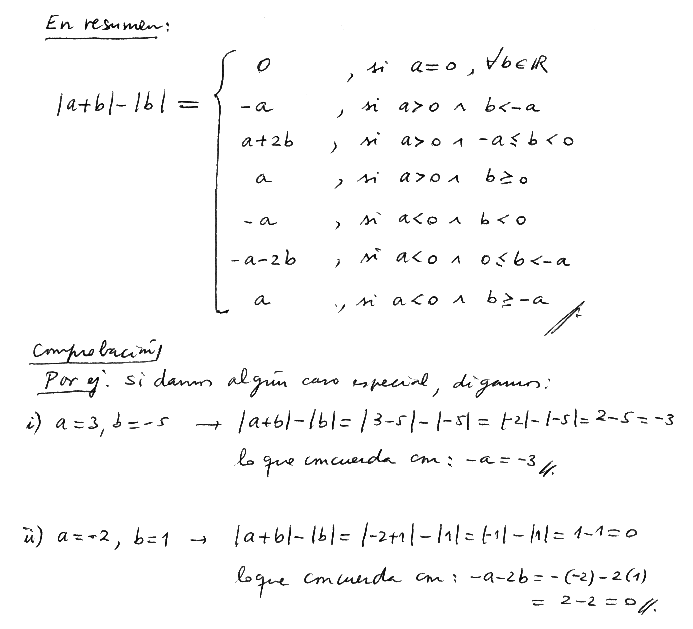 En resumen:
|a+b|-|b| = {
0 , si a=0 , ∀b∈ℝ
-a , si a>0 ∧ b<-a
a+2b , si a>0 ∧ -a≤b<0
a , si a>0 ∧ b≥0
-a , si a<0 ∧ b<0
-a-2b , si a<0 ∧ 0≤b<-a
a , si a<0 ∧ b≥-a //.
Comprobación/
Por ej. si damos algún caso especial, digamos:
i) a=3, b=-5 → |a+b|-|b|=|3-5|-|-5|=|-2|-|-5|=2-5=-3
lo que concuerda con: -a=-3//.
ii) a=-2, b=1 → |a+b|-|b|=|-2+1|-|1|=|-1|-|1|=1-1=0
lo que concuerda con: -a-2b=-(-2)-2(1)
= 2-2=0//.